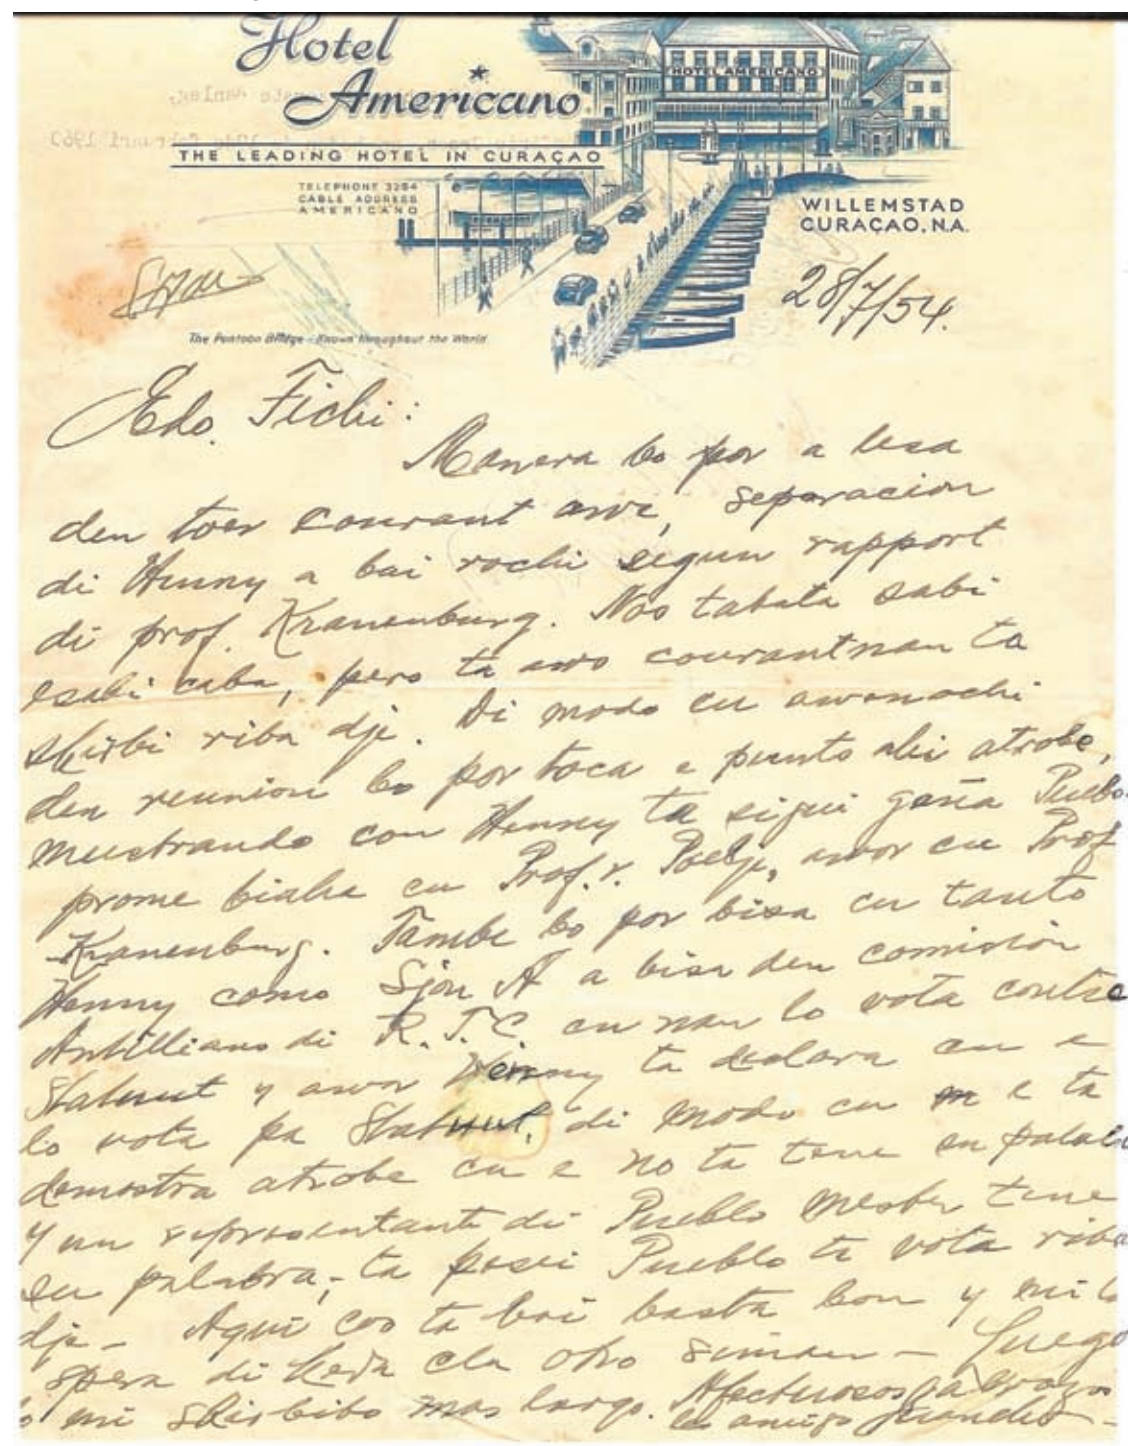 Hotel
Americano
HOTEL AMERICANO
THE LEADING HOTEL IN CURAÇAO
TELEPHONE 3284
CABLE ADDRESS
AMERICANO
WILLEMSTAD
CURAÇAO, N.A.
28/7/54.
The Pontoon Bridge – Known throughout the World
Edo. Fichi:
Manera bo por a lesa
den toer courant awe, separacion
di Henny a bai rochi segun rapport
di prof. Kranenburg. Nos tabata sabi
esaki caba, pero ta awo courantnan ta
skirbi riba dje. Di modo cu awonochi
den reunion bo por toca e punto aki atrobe,
mustrando con Henny ta sigui gaña Pueblo
prome biaha cu Prof. v. Poelje, awor cu Prof
Kranenburg. Tambe bo por bisa cu tanto
Henny como Sjon A a bisa den comision
Antilliano di R.T.C. cu nan lo vota contra
Statuut y awor Henny ta declara cu e
lo vota pa Statuut, di modo cu e ta
demostra atrobe cu e no ta tene su palabra
y un representante di Pueblo mester tene
su palabra, ta pesei Pueblo ta vota riba
dje – Aqui cos ta bai basta bon y mi lo
spera di keda cla otro siman – Luego
lo mi skirbibo mas largo. Afectuosos abrazos
di amigo Juancho –